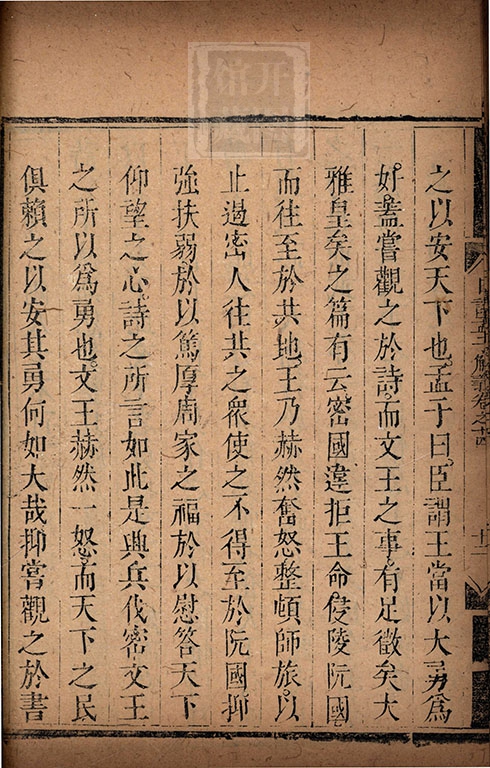 之以安天下也孟子曰臣謂王當以大勇爲
好蓋嘗觀之於詩而文王之事有足徵矣大
雅皇矣之篇有云密國違拒王命侵陵阮國
而往至於共地王乃赫然奮怒整頓師旅以
止遏密人往共之衆使之不得至於阮國抑
強扶弱於以篤厚周家之福於以慰答天下
仰望之心詩之所言如此是興兵伐密文王
之所以爲勇也文王赫然一怒而天下之民
俱賴之以安其勇何如大哉抑嘗觀之於書